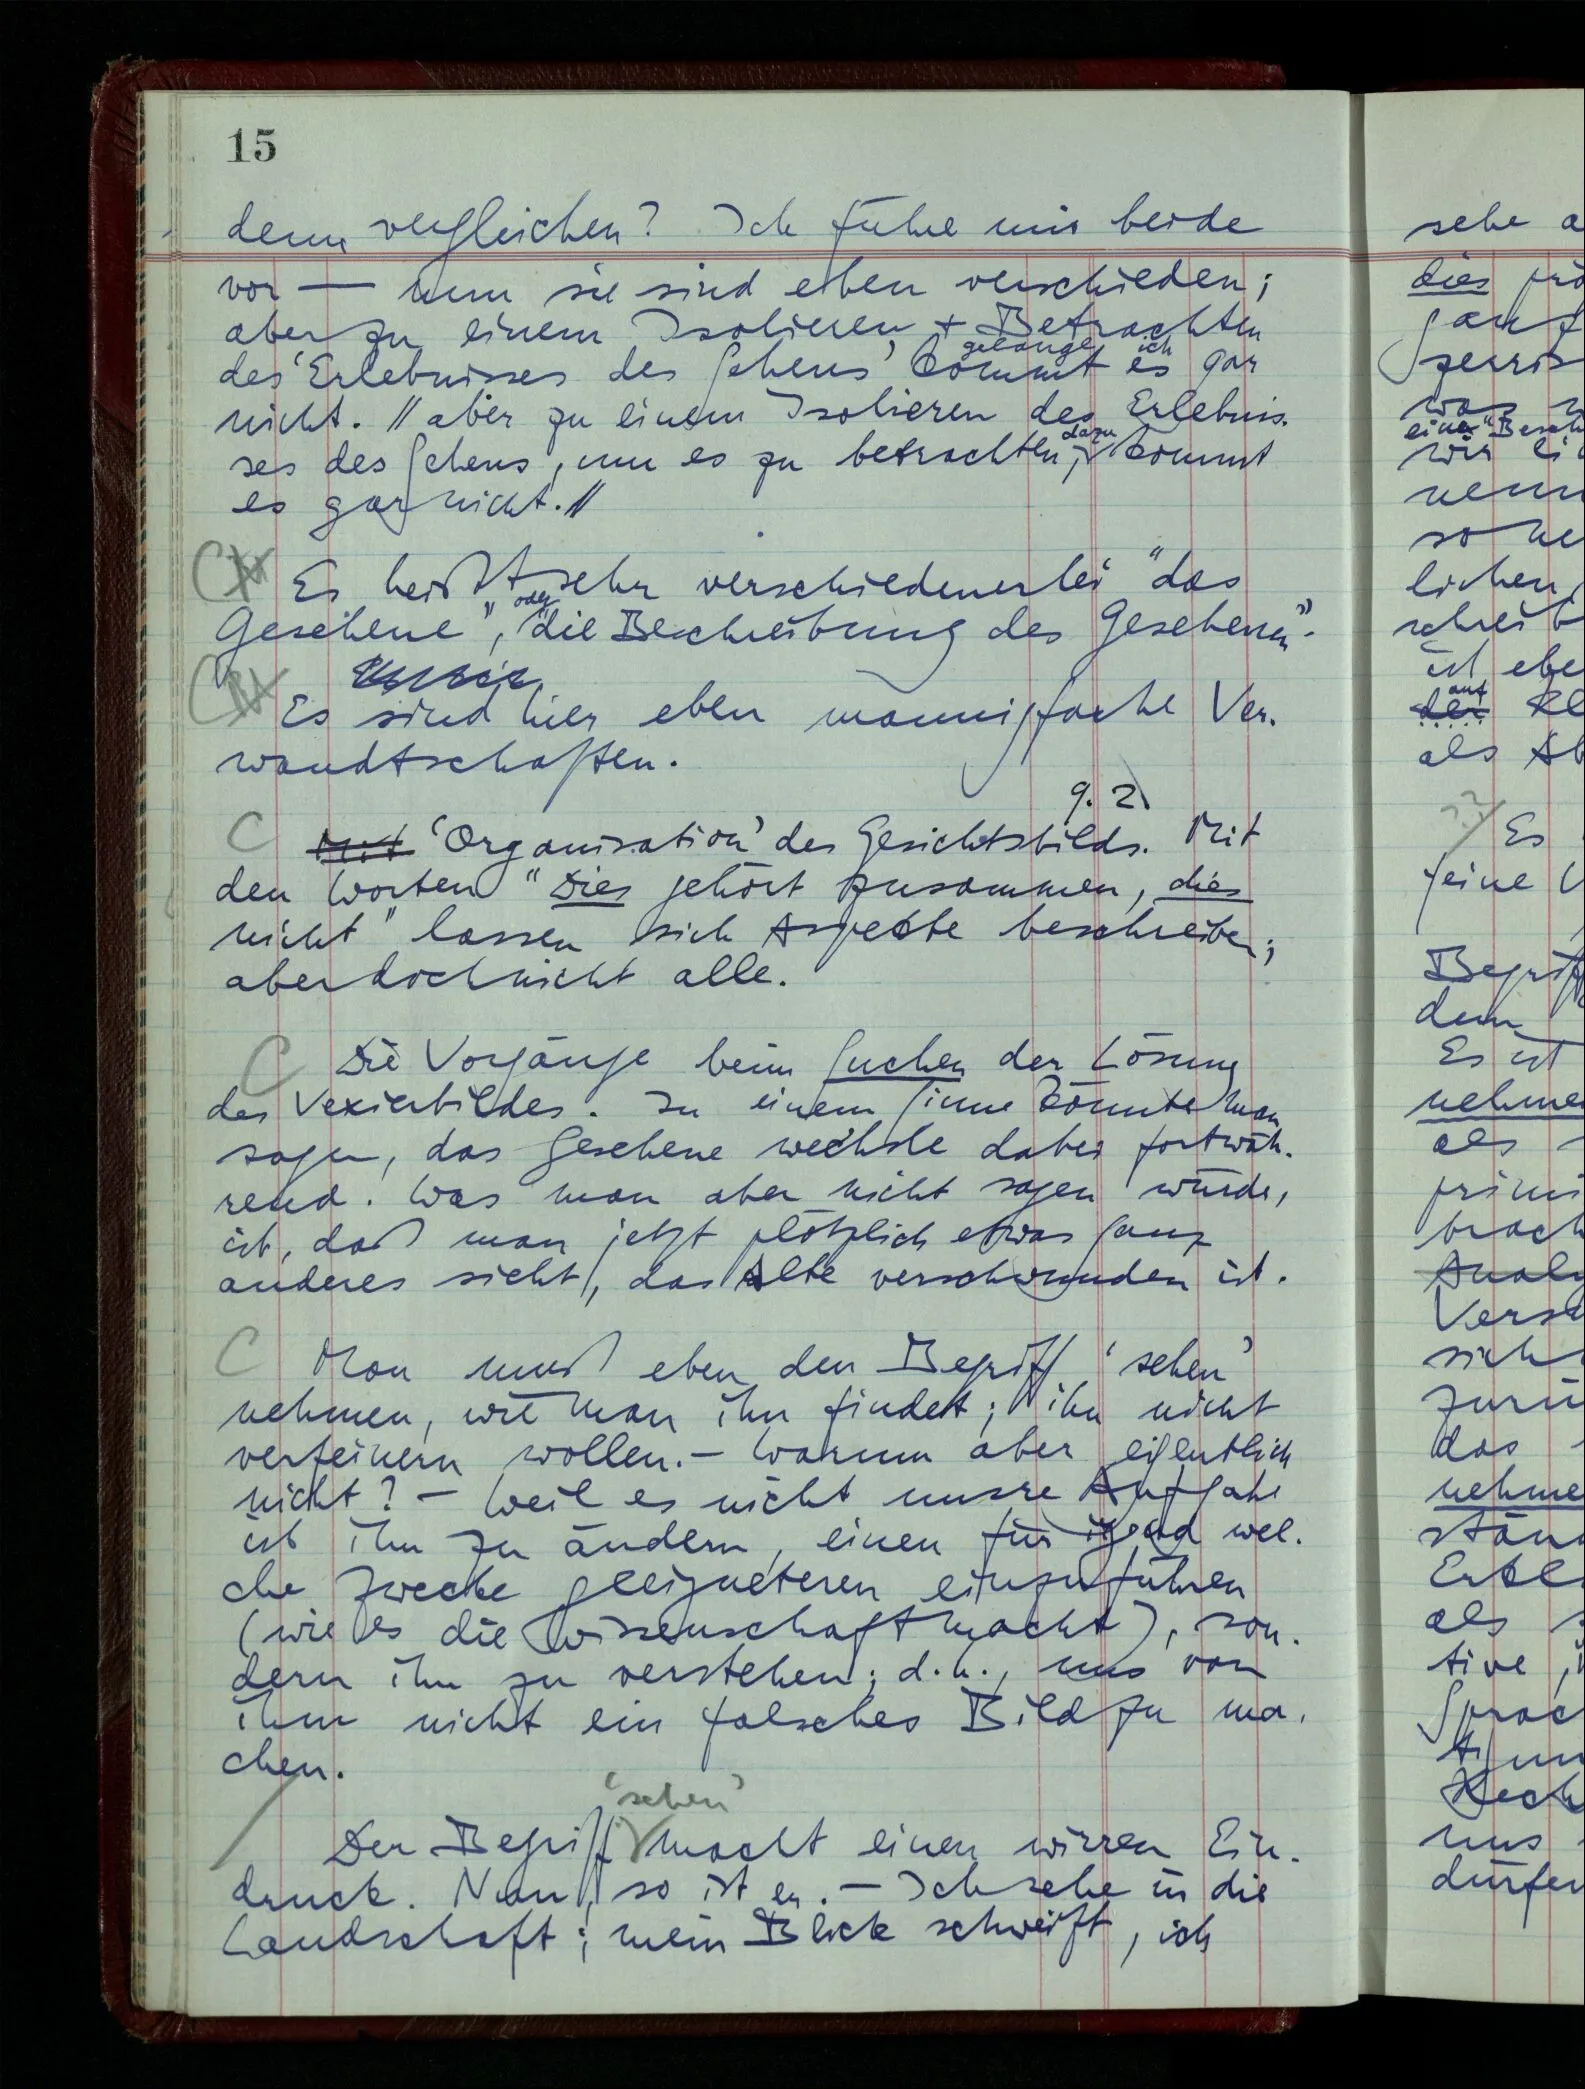 15
denn vergleichen? Ich führe mir beide
vor — nun sie sind eben verschieden;
aber zu einem Isolieren + Betrachten
gelange ich
des 'Erlebnisses des Sehens' kommt es gar
nicht. // aber zu einem Isolieren des Erlebnis-
dazu
ses des Sehens, um es zu betrachten, kommt
es gar nicht. //
C Es heißt sehr verschiedenerlei "das
oder
Gesehene", "die Beschreibung des Gesehenen".
C Es sind hier eben mannigfache Ver-
wandtschaften.
9.2.
C Mit 'Organisation' des Gesichtsbilds. Mit
den Worten "Dies gehört zusammen, dies
nicht" lassen sich Aspekte beschreiben;
aber doch nicht alle.
C Die Vorgänge beim Suchen der Lösung
des Vexierbildes. In einem Sinne könnte man
sagen, das Gesehene wechsle dabei fortwäh-
rend. Was man aber nicht sagen würde,
ist, daß man jetzt plötzlich etwas ganz
anderes sieht, das Alte verschwunden ist.
C Man muß eben den Begriff 'sehen'
nehmen, wie man ihn findet; ihn nicht
verfeinern wollen. – Warum aber eigentlich
nicht? – Weil es nicht unsre Aufgabe
ist ihn zu ändern, einen für irgend wel-
che Zwecke geeigneteren einzuführen
(wie es die Wissenschaft macht), son-
dern ihn zu verstehen; d.h., uns von
ihm nicht ein falsches Bild zu ma-
chen.
'sehen'
/ Der Begriff macht einen wirren Ein-
druck. Nun, so ist er. – Ich sehe in die
Landschaft; mein Blick schweift, ich
sehe
dies
ganz
was
wir
nenn
so
lichen
schreib
ist ebe
auf
der
als
?? / Es
feine
Begriff
dem
Es ist
nehme
als
primi
brach
Analy
Vers
sich
zurü
das
nehme
stän
als
tive
Sprac
uns
dürfen